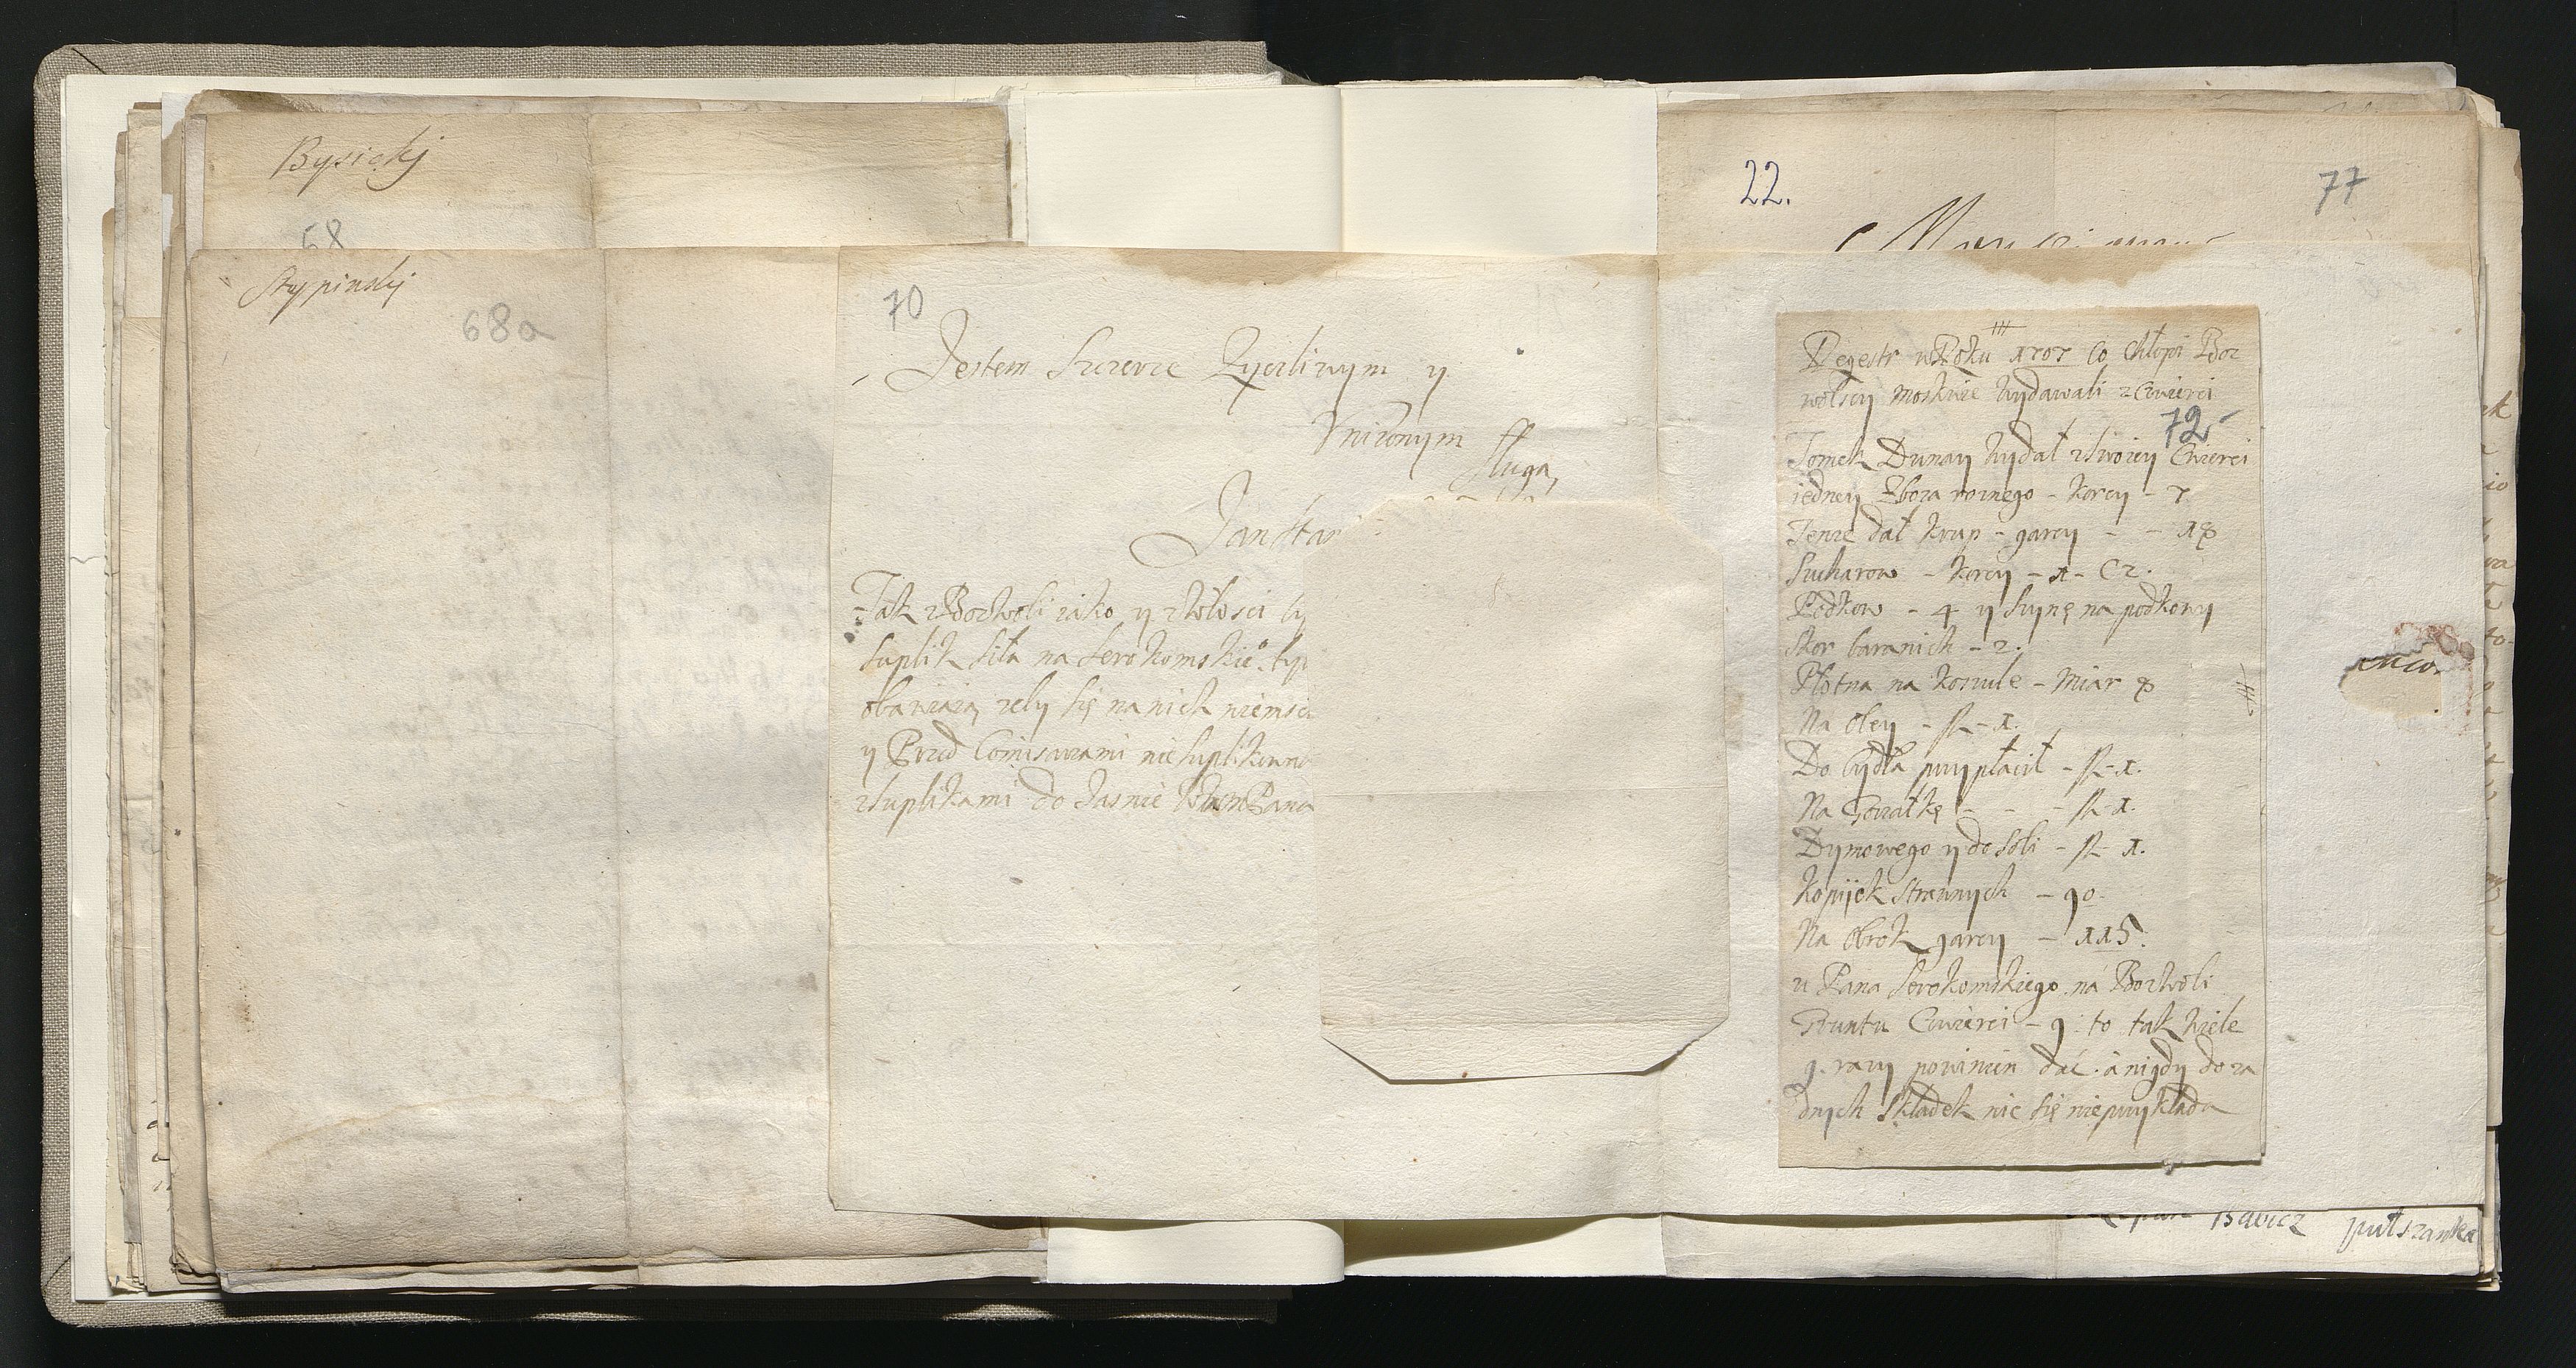 Bysickj
68
Stypinskj
68a
70
Jestem Szczerze Zyczliwym y
Vnizonym
sługa,
Jan Star
Tak z Borkwoli iako y z Włosci
suplik siła na Serokomskieo
obawiaią zeby się na nich niemsci
y Przed Comisarzami nie suplikowa
z suplikami do Jasnie Pana
22.
77
Regestr w Roku 1707 Co Chłopi Bor
wolscy Moskwie Wydawali z Cwierci
72
Tomek Dunay Wydał z swoiey Cwierci
iedney Zboza roznego - Korcy - 7
Tenze dał Krup - garcy - - 18
Sucharow - Korcy - 1 - Cz.
Podkow - 4 y Synę na podkowy
Skor baranich - 2.
Płotna na Koszule - Miar 8
Na Oley - 1.
Do bydła przypłacił - 1.
Na - - - 1.
Dymowego y do Soli - 1.
Kopijek Strawnych - 90.
Na Obrok garcy - 115.
u Pana Serokomskiego na Borkwoli
Gruntu Cwierci - 9: to tak Wiele
9. razy powinien dać. a nigdy do za
dnych Składek nic się nieprzykłada
Bawicz
pułszanka